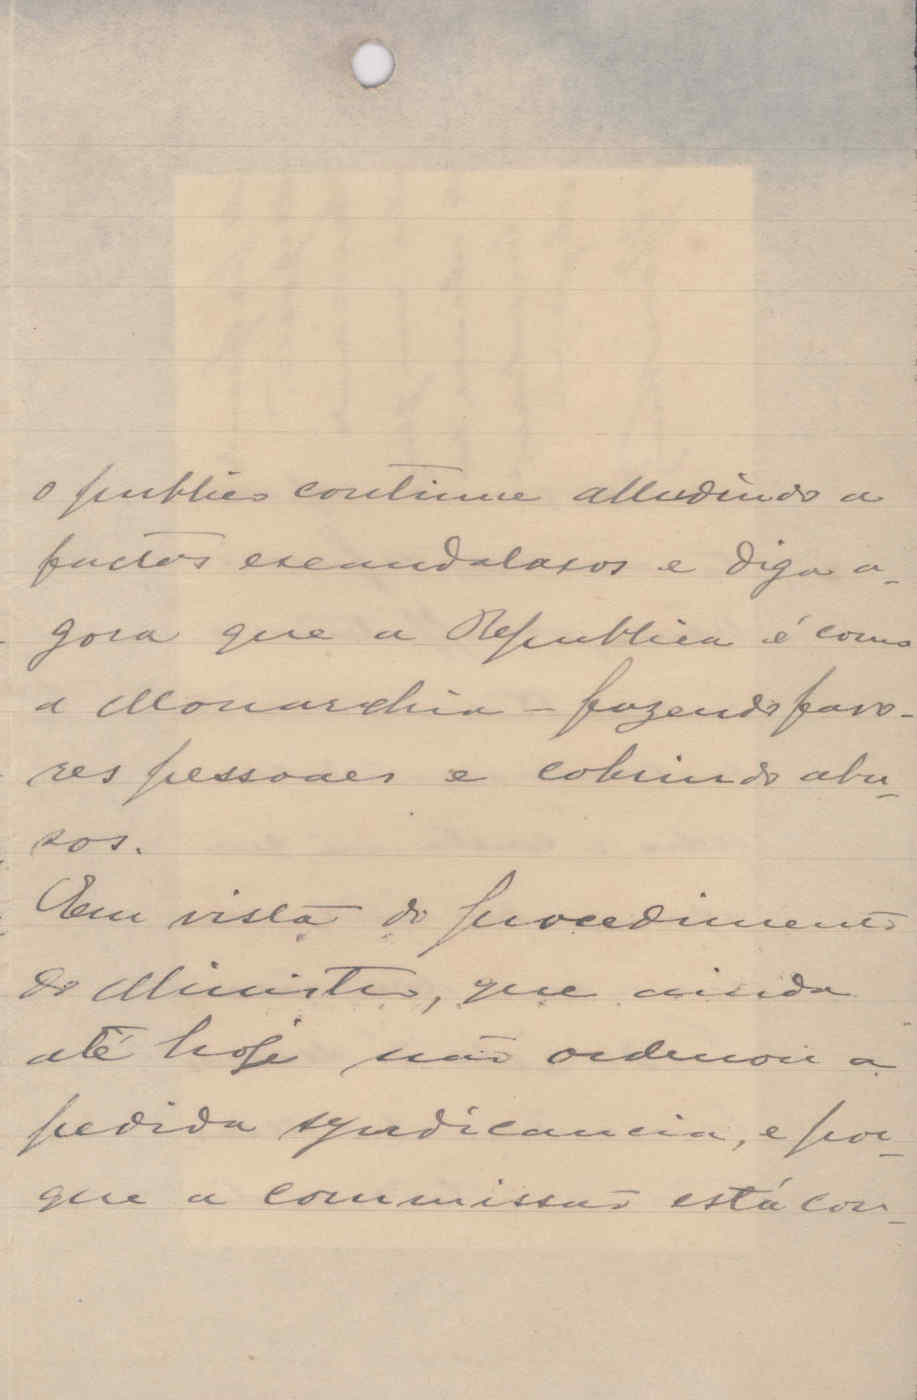 o publico continue alludindo a
factos escandalosos e diga a-
gora que a Republica é como
a Monarchia - fazendo favo-
res pessoaes e cobrindo abu-
sos.
Em vista do procedimento
do Ministro, que ainda
até hoje não ordenou a
pedida syndicancia, e por-
que a commissão está con-